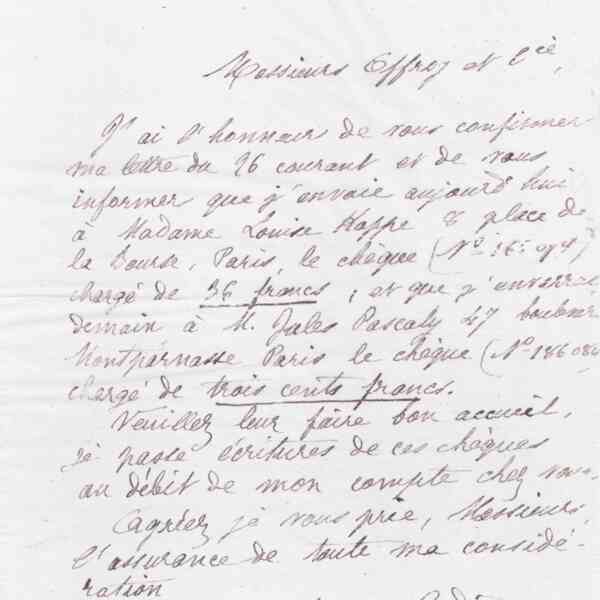 Messieurs Offroy et Cie,
J'ai l'honneur de vous confirmer
ma lettre du 26 courant et de vous
informer que j'envoie aujourd'hui
à Madame Louise Kappe 8 place de
la Bourse, Paris, le chèque (No
chargé de 36 francs ; et que j'enverrai
demain à M. Jules Pascaly 47 boulevar
Montparnasse Paris le chèque (No 186 084
chargé de trois cents francs.
Veuillez leur faire bon accueil,
je passe écritures de ces chèques
au débit de mon compte chez vous.
Agréez je vous prie, Messieurs,
l'assurance de toute ma considé-
ration